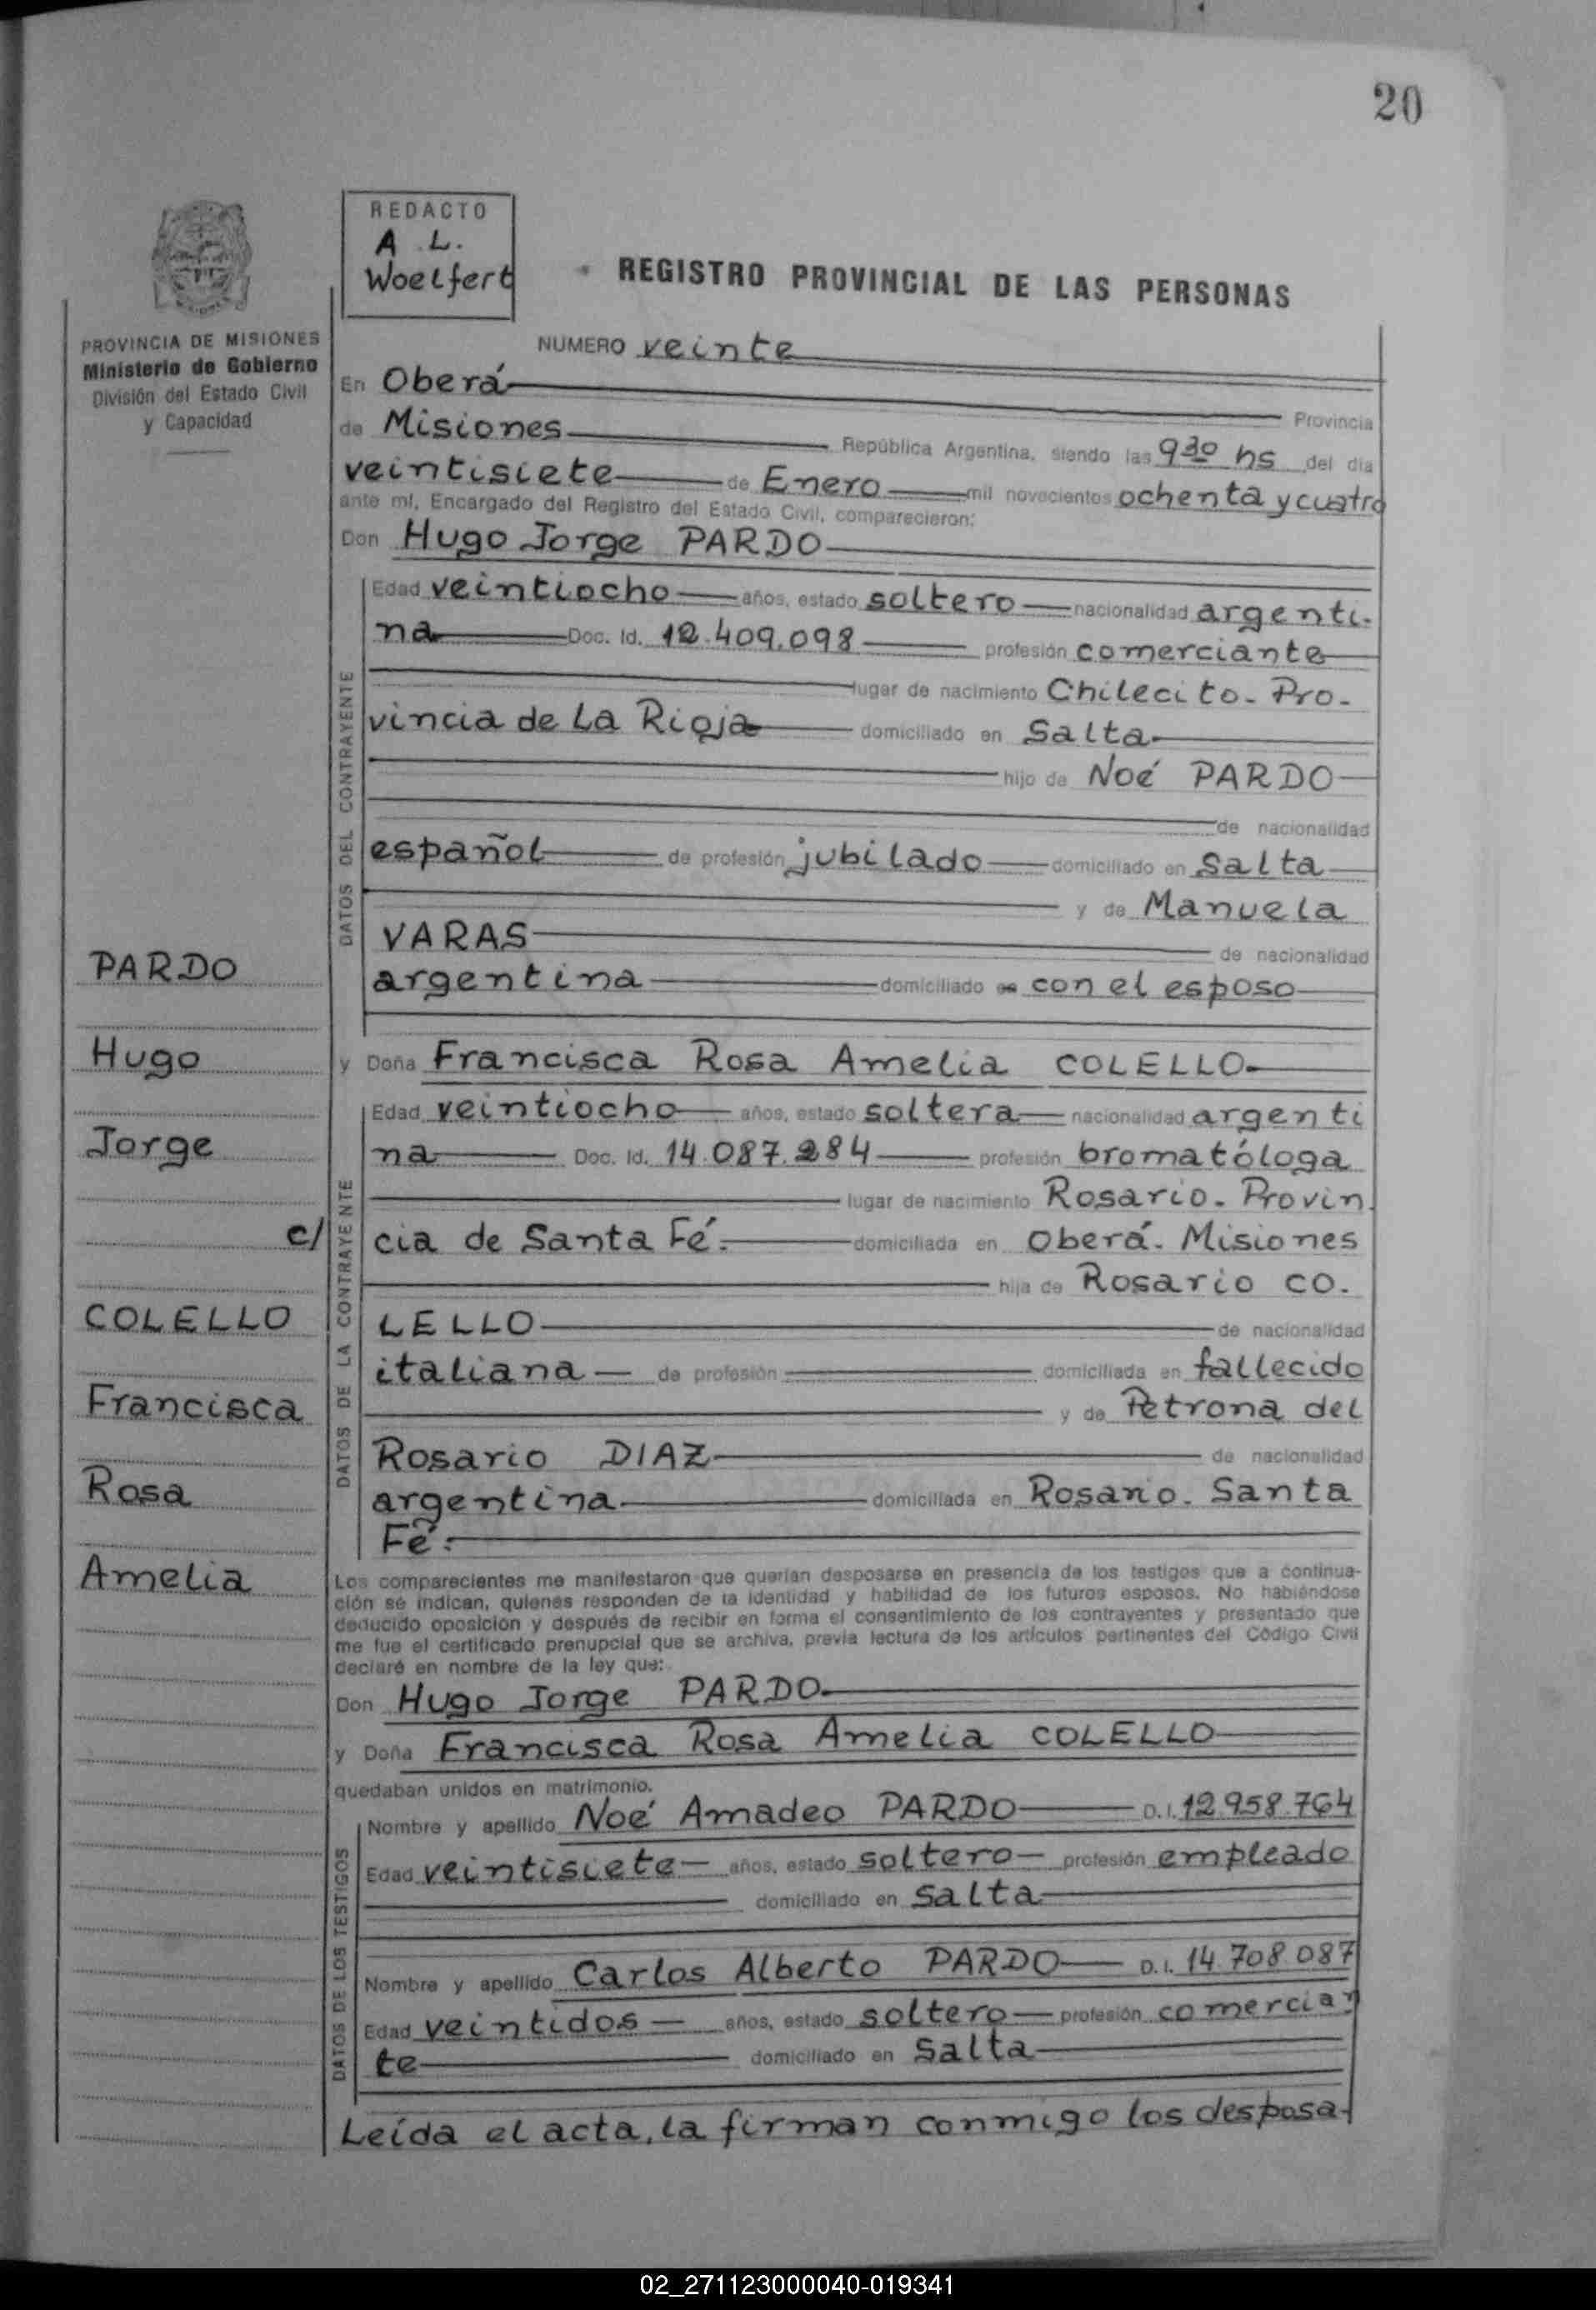 20
REDACTO
A. L.
Woelfert
REGISTRO PROVINCIAL DE LAS PERSONAS
PROVINCIA DE MISIONES
Ministerio de Gobierno
División del Estado Civil
y Capacidad
NUMERO veinte
En Oberá Provincia
de Misiones República Argentina, siendo las 9 30 hs del día
veintisiete de Enero mil novecientos ochenta y cuatro
ante mí, Encargado del Registro del Estado Civil, comparecieron:
Don Hugo Jorge PARDO
DATOS DEL CONTRAYENTE
Edad veintiocho años, estado soltero nacionalidad argenti-
na Doc. Id. 12.409.098 profesión comerciante
lugar de nacimiento Chilecito. Pro-
vincia de La Rioja domiciliado en Salta
hijo de Noé PARDO
de nacionalidad
español de profesión jubilado domiciliado en Salta
y de Manuela
VARAS de nacionalidad
argentina domiciliado con el esposo
y Doña Francisca Rosa Amelia COLELLO
DATOS DE LA CONTRAYENTE
Edad veintiocho años, estado soltera nacionalidad argenti
na Doc. Id. 14.087.284 profesión bromatóloga
lugar de nacimiento Rosario. Provin
cia de Santa Fé. domiciliada en Oberá. Misiones
hija de Rosario CO.
LELLO de nacionalidad
italiana de profesión domiciliada en fallecido
y de Petrona del
Rosario DIAZ de nacionalidad
argentina domiciliada en Rosario. Santa
Fé.
PARDO
Hugo
Jorge
c/
COLELLO
Francisca
Rosa
Amelia
Los comparecientes me manifestaron que querían desposarse en presencia de los testigos que a continua-
ción se indican, quienes responden de la identidad y habilidad de los futuros esposos. No habiéndose
deducido oposición y después de recibir en forma el consentimiento de los contrayentes y presentado que
me fue el certificado prenupcial que se archiva, previa lectura de los artículos pertinentes del Código Civil
declaré en nombre de la ley que:
Don Hugo Jorge PARDO
y Doña Francisca Rosa Amelia COLELLO
quedaban unidos en matrimonio.
DATOS DE LOS TESTIGOS
Nombre y apellido Noé Amadeo PARDO D.I. 12.958.764
Edad veintisiete años, estado soltero profesión empleado
domiciliado en Salta
Nombre y apellido Carlos Alberto PARDO D.I. 14.708.087
Edad veintidos años, estado soltero profesión comercian
te domiciliado en Salta
Leída el acta, la firman conmigo los desposa-
02_271123000040-019341